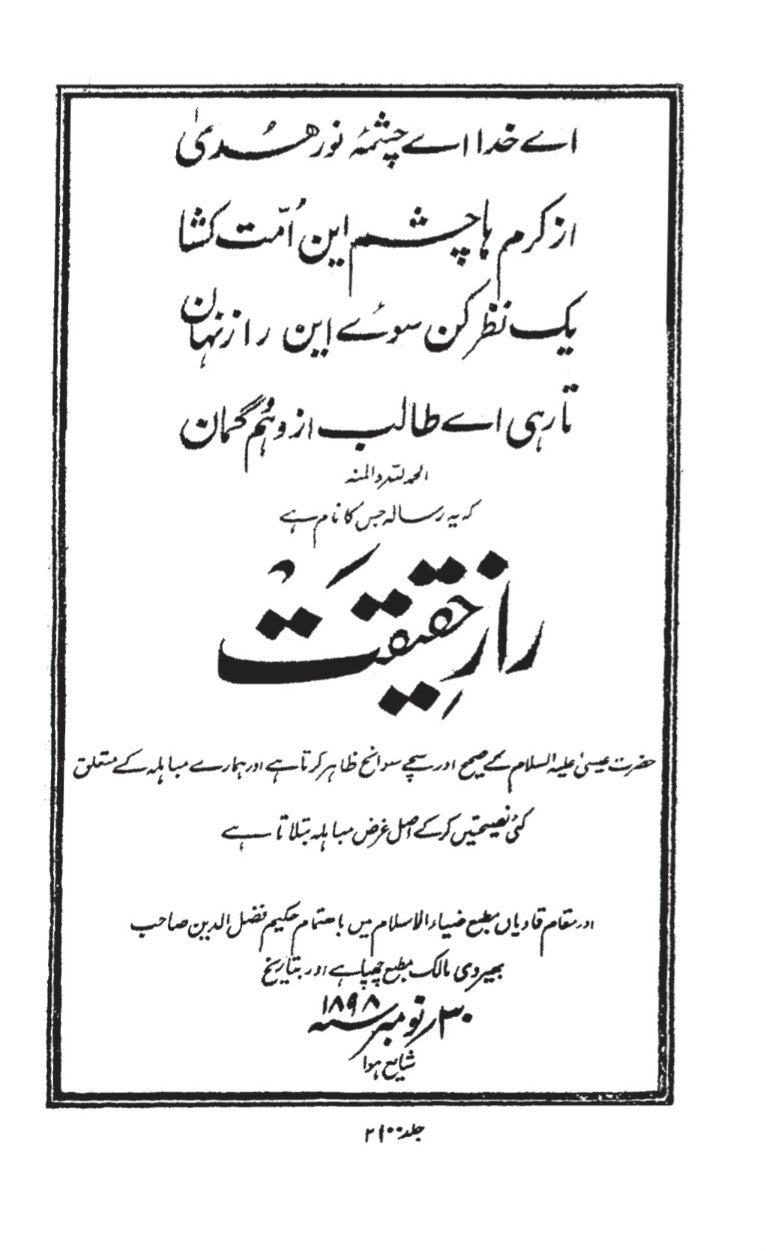 اے خدا اے چشمۂ نور ھُدیٰ
از کرم ہا چشم این اُمّت کشا
یک نظر کن سوئے این راز نہان
تا رہی اے طالب از وہم گمان
الحمد للہ والمنہ
کہ یہ رسالہ جس کا نام ہے
رازِ حقیقت
حضرت عیسیٰ علیہ السلام کے صحیح اور سچے سوانح ظاہر کرتا ہے اور ہمارے مباہلہ کے متعلق
کئی نصیحتیں کر کے اصل غرض مباہلہ بتلاتا ہے
اور مقام قادیاں مطبع ضیاء الاسلام میں باہتمام حکیم فضل الدین صاحب
بھیروی مالک مطبع چھپا ہے اور بتاریخ
۳۰ نومبر سنہ ۱۸۹۸
شایع ہوا
جلد ۲۱۰۰